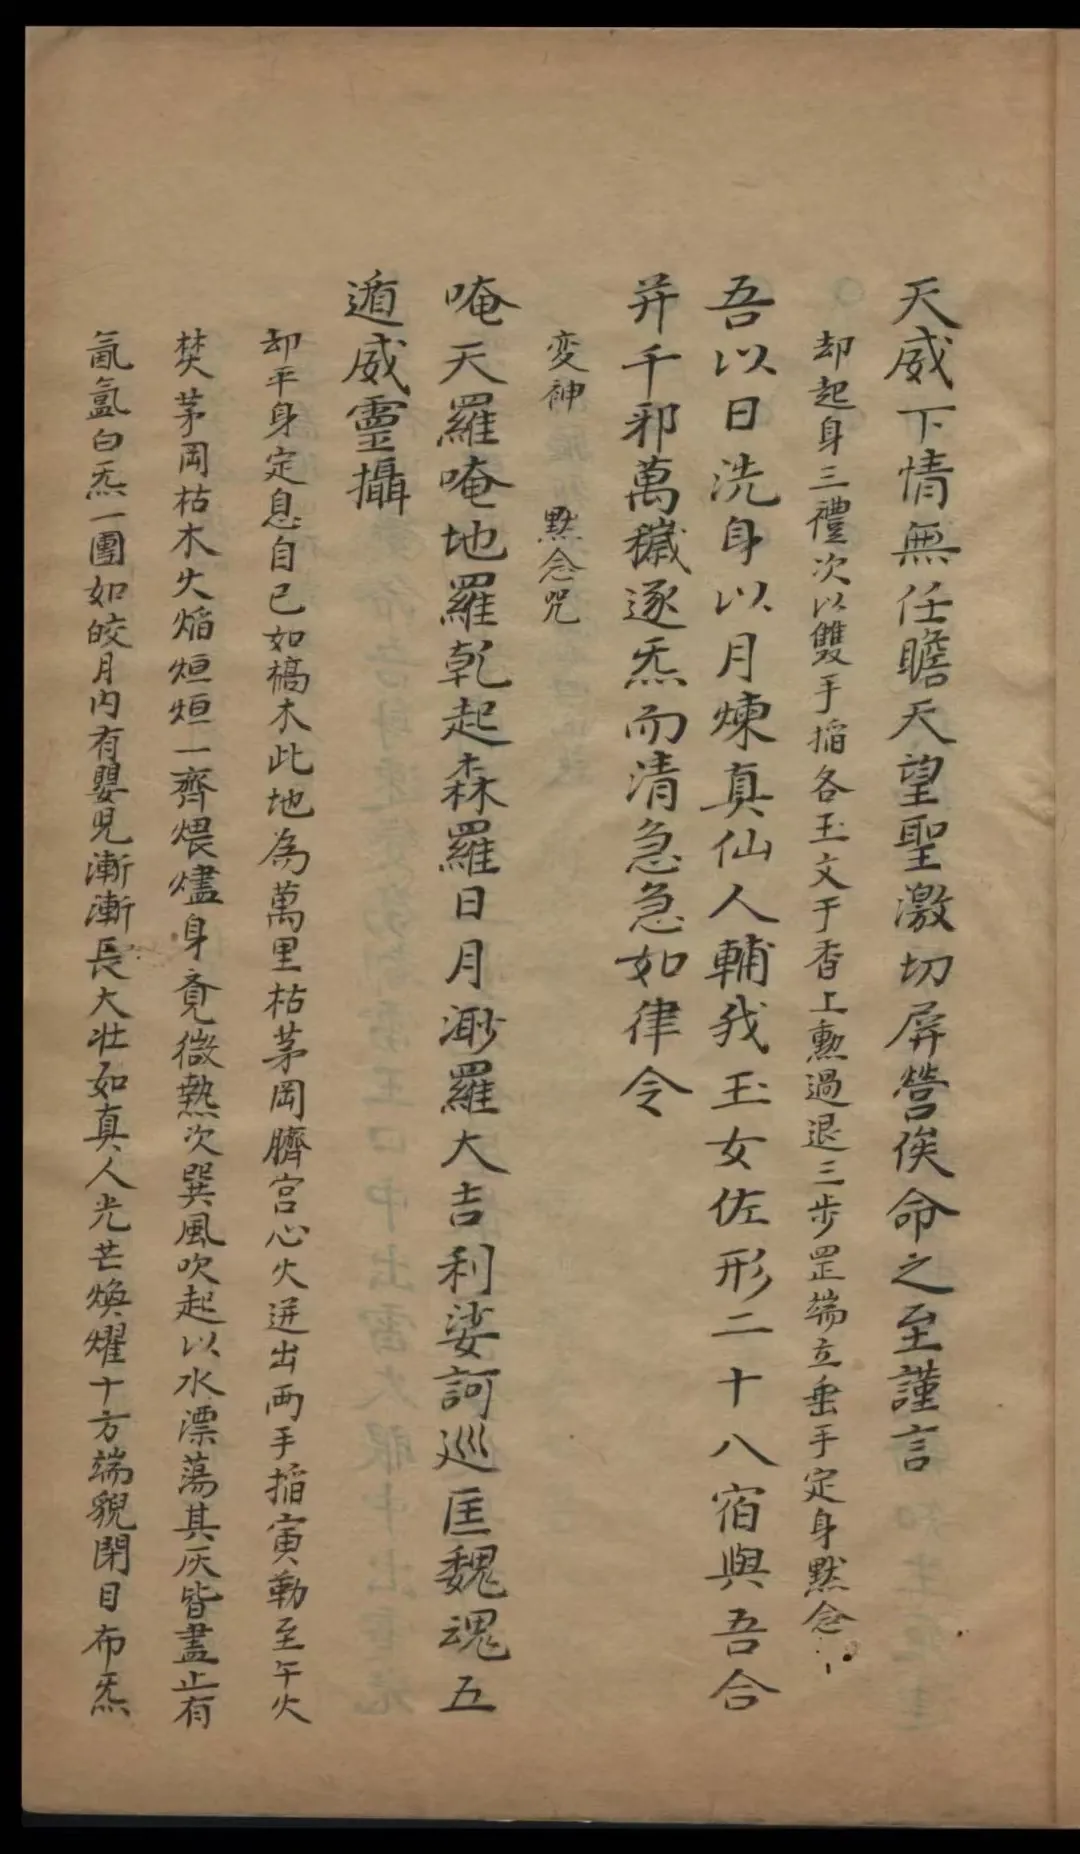 天威下情無任瞻天望聖激切屏營俟命之至謹言
却起身三禮次以雙手搯各玉文于香上勲過退三步罡端立垂手定身黙念
吾以日洗身以月煉真仙人輔我玉女佐形二十八宿與吾合
并千邪萬穢逐炁而清急急如律令
変神 黙念咒
唵天羅唵地羅乾起森羅日月渺羅大吉利娑訶巡匡魏魂五
遁威靈攝
却平身定息自己如槁木此地為萬里枯茅岡臍宮心火迸出両手搯寅勒至午火
焚茅岡枯木火焰烜烜一齊煨燼身竟微熱次巽風吹起以水漂蕩其灰皆盡止有
氤氳白炁一團如皎月内有嬰児漸漸長大壮如真人光芒煥耀十方端貌閉目布炁